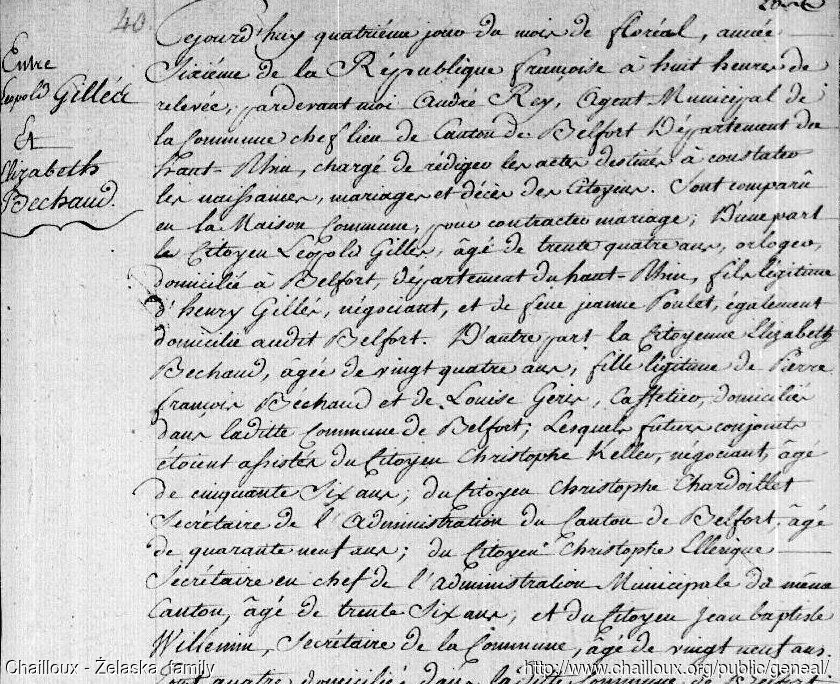 40
Entre
Leopold Gilléz
Et
Elizabeth
Bechaud.
Cejourd'huy quatriéme jour du mois de floréal, année
Sixiéme de la République françoise à huit heures de
relevée, pardevant moi André Roy, Agent Municipal de
la Commune chef lieu de Canton de Belfort Département du
haut-Rhin, chargé de rédiger les actes destinés à constater
les naissances, mariages et décès des Citoyens. Sont comparû
en la Maison Commune, pour contracter mariage; D'une part
le Citoyen Léopold Gilles, âgé de trente quatre ans, orloger,
domicilié à Belfort, département du haut-Rhin, fils légitime
d'henry Gillés, négociant, et de feue jeanne Poulet, également
domicilié audit Belfort. D'autre part la Citoyenne Elizabeth
Bechaud, âgée de vingt quatre ans, fille légitime de Pierre
françois Bechaud et de Louise Geris, Caffetier, domiciliés
dans laditte Commune de Belfort; Lesquels futurs conjoints
étoient assistés du Citoyen Christophe Keller, négociant, âgé
de cinquante Six ans; du Citoyen Christophe Chardoillet
Secrétaire de l'Administration du Canton de Belfort, âgé
de quarante neuf ans; du Citoyen Christophe Ellerique
Secrétaire en chef de l'administration Municipale du même
Canton, âgé de trente Six ans; et du Citoyen Jean baptiste
Willemin, Secrétaire de la Commune, âgé de vingt neuf ans.
tous quatre domiciliés dans laditte Commune de Belfort
Chailloux - Żelaska family
http://www.chailloux.org/public/geneal/